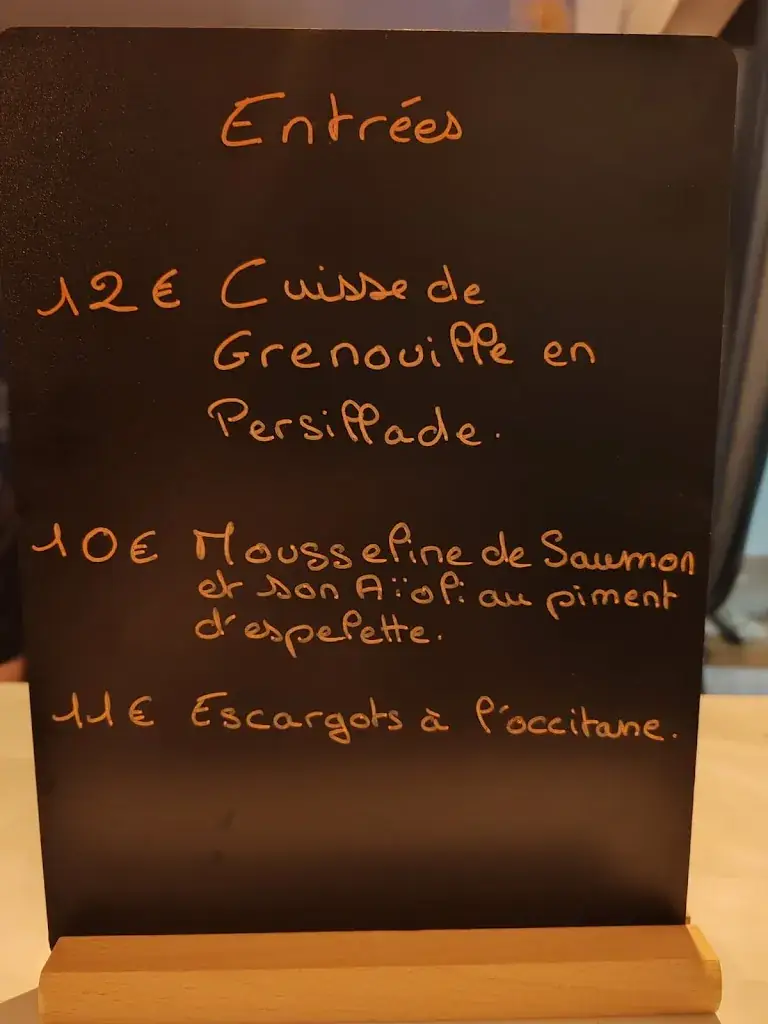 Entrées
12€ Cuisse de
Grenouille en
Persillade.
10€ Mousseline de Saumon
et son Aïoli au piment
d'espelette.
11€ Escargots à l'occitane.